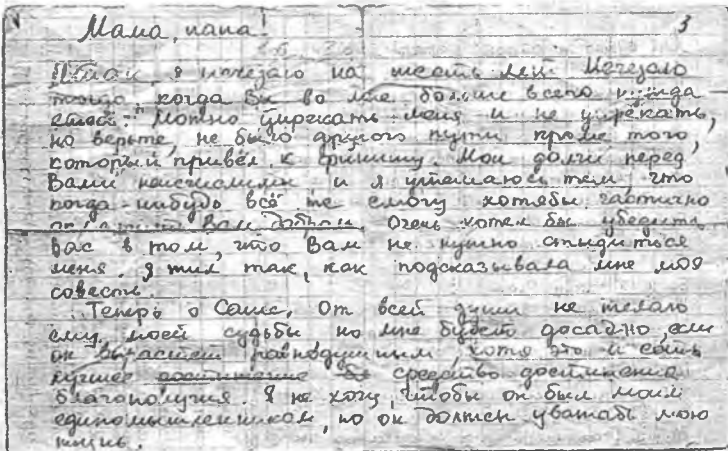 Мама, папа!
3
Итак, я исчезаю на шесть лет. Исчезаю
тогда, когда Вы во мне больше всего
Можно упрекать меня и не упрекать,
но верьте, не было другого пути кроме того,
который привёл к финишу. Мои долги перед
Вами неисчислимы и я утешаюсь тем, что
когда-нибудь всё же смогу хотябы частично
Вам добром. Очень хотел бы убедить
вас в том, что Вам не нужно стыдиться
меня. Я жил так, как подсказывала мне моя
совесть.
Теперь о Саше. От всей души не желаю
ему моей судьбы но мне будет досадно, если
он вырастет равнодушным, хотя это и есть
лучшее средство достижения
благополучия. Я не хочу, чтобы он был моим
единомышленником, но он должен уважать мою
жизнь.